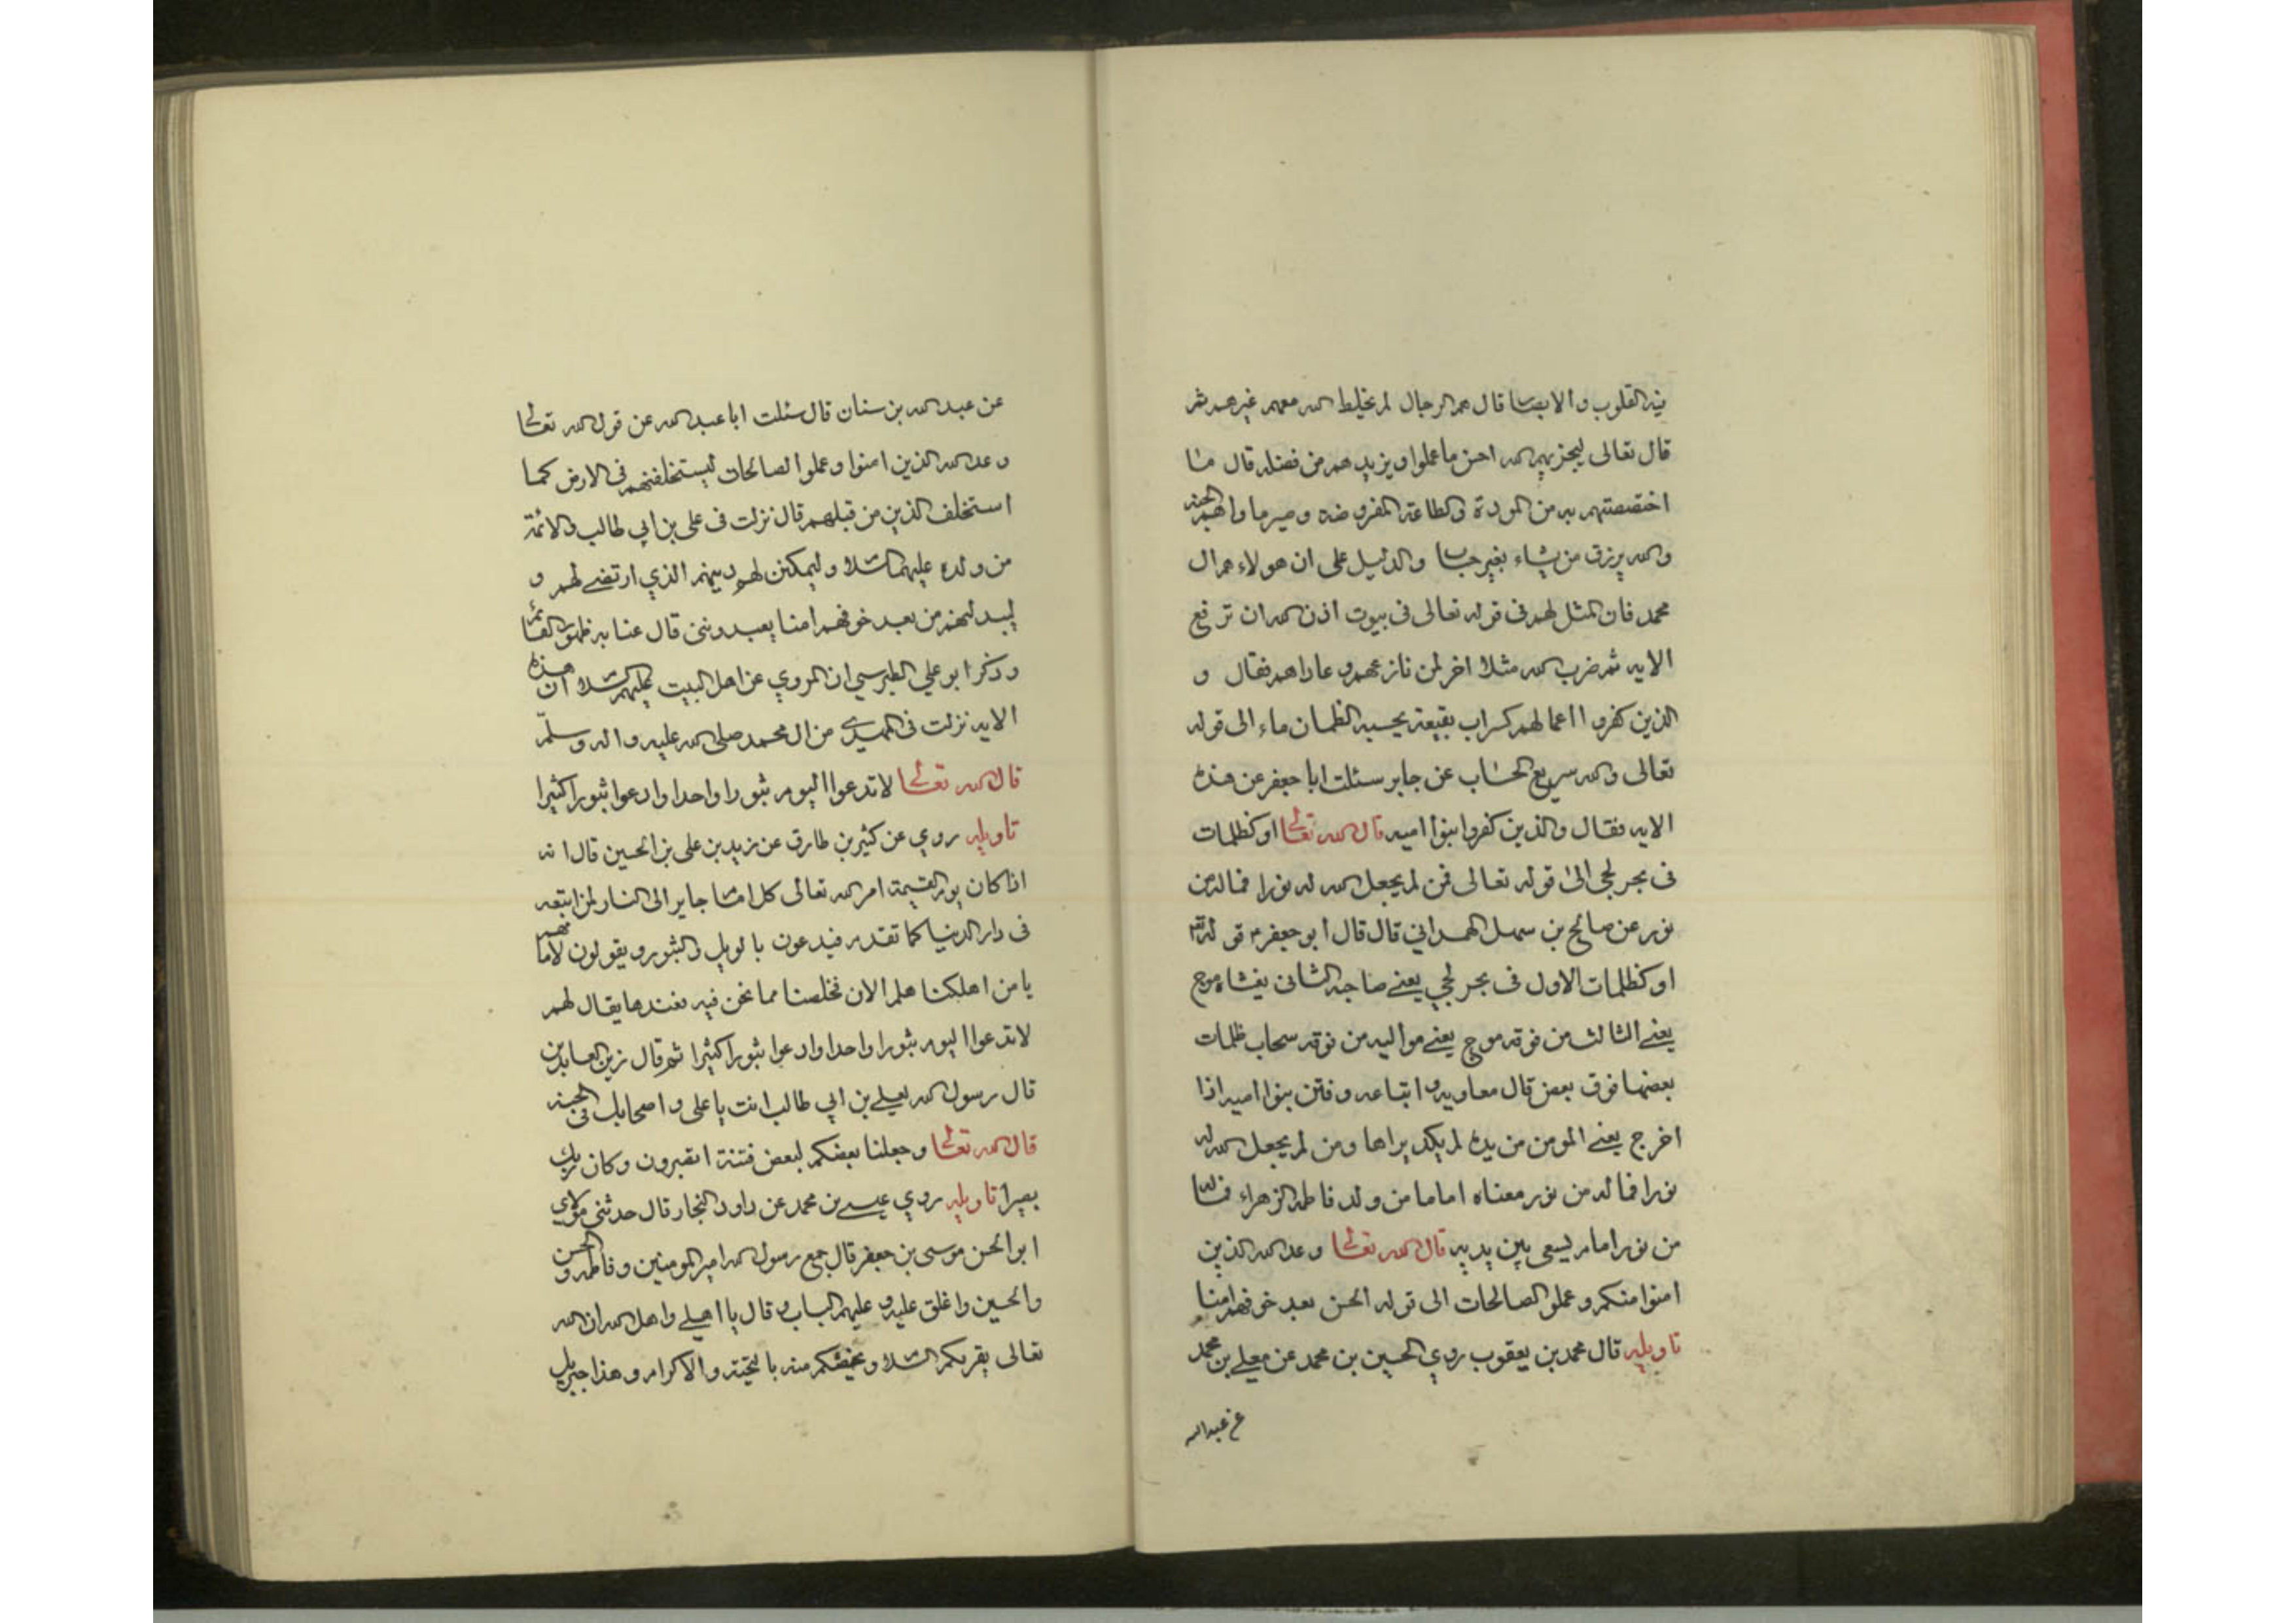 فيه القلوب والابصار قال هم الرجال لم يخلط الله معهم غيرهم ثم
قال تعالى ليجزيهم الله احسن ما عملوا ويزيدهم من فضله قال ما
اختصصتهم به من المودة والطاعة المفروضه وصير ماواهم الجنه
والله يرزق من يشاء بغير حساب والدليل على ان هولاء هم ال
محمد فان المثل لهم فى قوله تعالى فى بيوت اذن الله ان ترفع
الايه ثم ضرب الله مثلا اخر لمن نازعهم وعاداهم فقال و
الذين كفروا اعمالهم كسراب بقيعة يحسبه الظمان ماء الى قوله
تعالى والله سريع الحساب عن جابر سئلت ابا جعفر عن هذه
الايه فقال والذين كفروا بنوا اميه قال الله تعالى او كظلمات
فى بحر لجى الى قوله تعالى فمن لم يجعل الله له نورا فما له من
نور عن صالح بن سهل الهمداني قال قال ابو جعفر م قوله تعالى
او كظلمات الاول فى بحر لجي يعنے صاحبه الثانى يغشاه موج
يعنے الثالث من فوقه موج يعنے مواليه من فوقه سحاب ظلمات
بعضها فوق بعض قال معاويه واتباعه وفتن بنوا اميه اذا
اخرج يعنے المومن من يده لم يكد يراها ومن لم يجعل الله له
نورا فما له من نور معناه اماما من ولد فاطمه الزهراء فما له
من نور امام يسعى بين يديه قال الله تعالى وعد الله الذين
امنوا منكم وعملو الصالحات الى قوله الحسن بعد خوفهم امنا
تاويله قال محمد بن يعقوب روي الحسين بن محمد عن معلے بن محمد
عن عبد الله
عن عبد الله بن سنان قال سئلت ابا عبد الله عن قول الله تعالى
وعد الله الذين امنوا وعملوا الصالحات ليستخلفنهم فى الارض كما
استخلف الذين من قبلهم قال نزلت فى على بن ابي طالب والائمة
من ولده عليهم السلام وليمكنن لهم دينهم الذي ارتضے لهم و
ليبدلنهم من بعد خوفهم امنا يعبدوننى قال عنا به ظهور القائم
وذكر ابو علي الطبرسي ان المروي عن اهل البيت عليهم السلام ان هذه
الايه نزلت فى المهدے من ال محمد صلى الله عليه واله وسلم
قال الله تعالى لا تدعوا اليوم ثبورا واحدا وادعوا ثبورا كثيرا
تاويله روي عن كثير بن طارق عن زيد بن على بن الحسين قال انه
اذا كان يوم القيمة امر الله تعالى كل امام جاير الى النار لمن اتبعه
فى دار الدنيا كما تقدم فيدعون بالويل والثبور ويقولون لامامهم
يا من اهلكنا هلم الان فخلصنا مما نحن فيه فعندها يقال لهم
لا تدعوا اليوم ثبورا واحدا وادعوا ثبورا كثيرا ثم قال زين العابدين
قال رسول الله لعلے بن ابي طالب انت يا على واصحابك فى الجنه
قال الله تعالى وجعلنا بعضكم لبعض فتنة اتصبرون وكان ربك
بصيرا تاويله روي عيسے بن محمد عن داود النجار قال حدثنى مولاى
ابو الحسن موسى بن جعفر قال جمع رسول الله امير المومنين وفاطمه والحسن
والحسين واغلق عليه وعليهم الباب وقال يا اهلے واهل الله ان الله
تعالى يقريكم السلام ويخصكم منه بالتحيته والاكرام وهذا جبريل